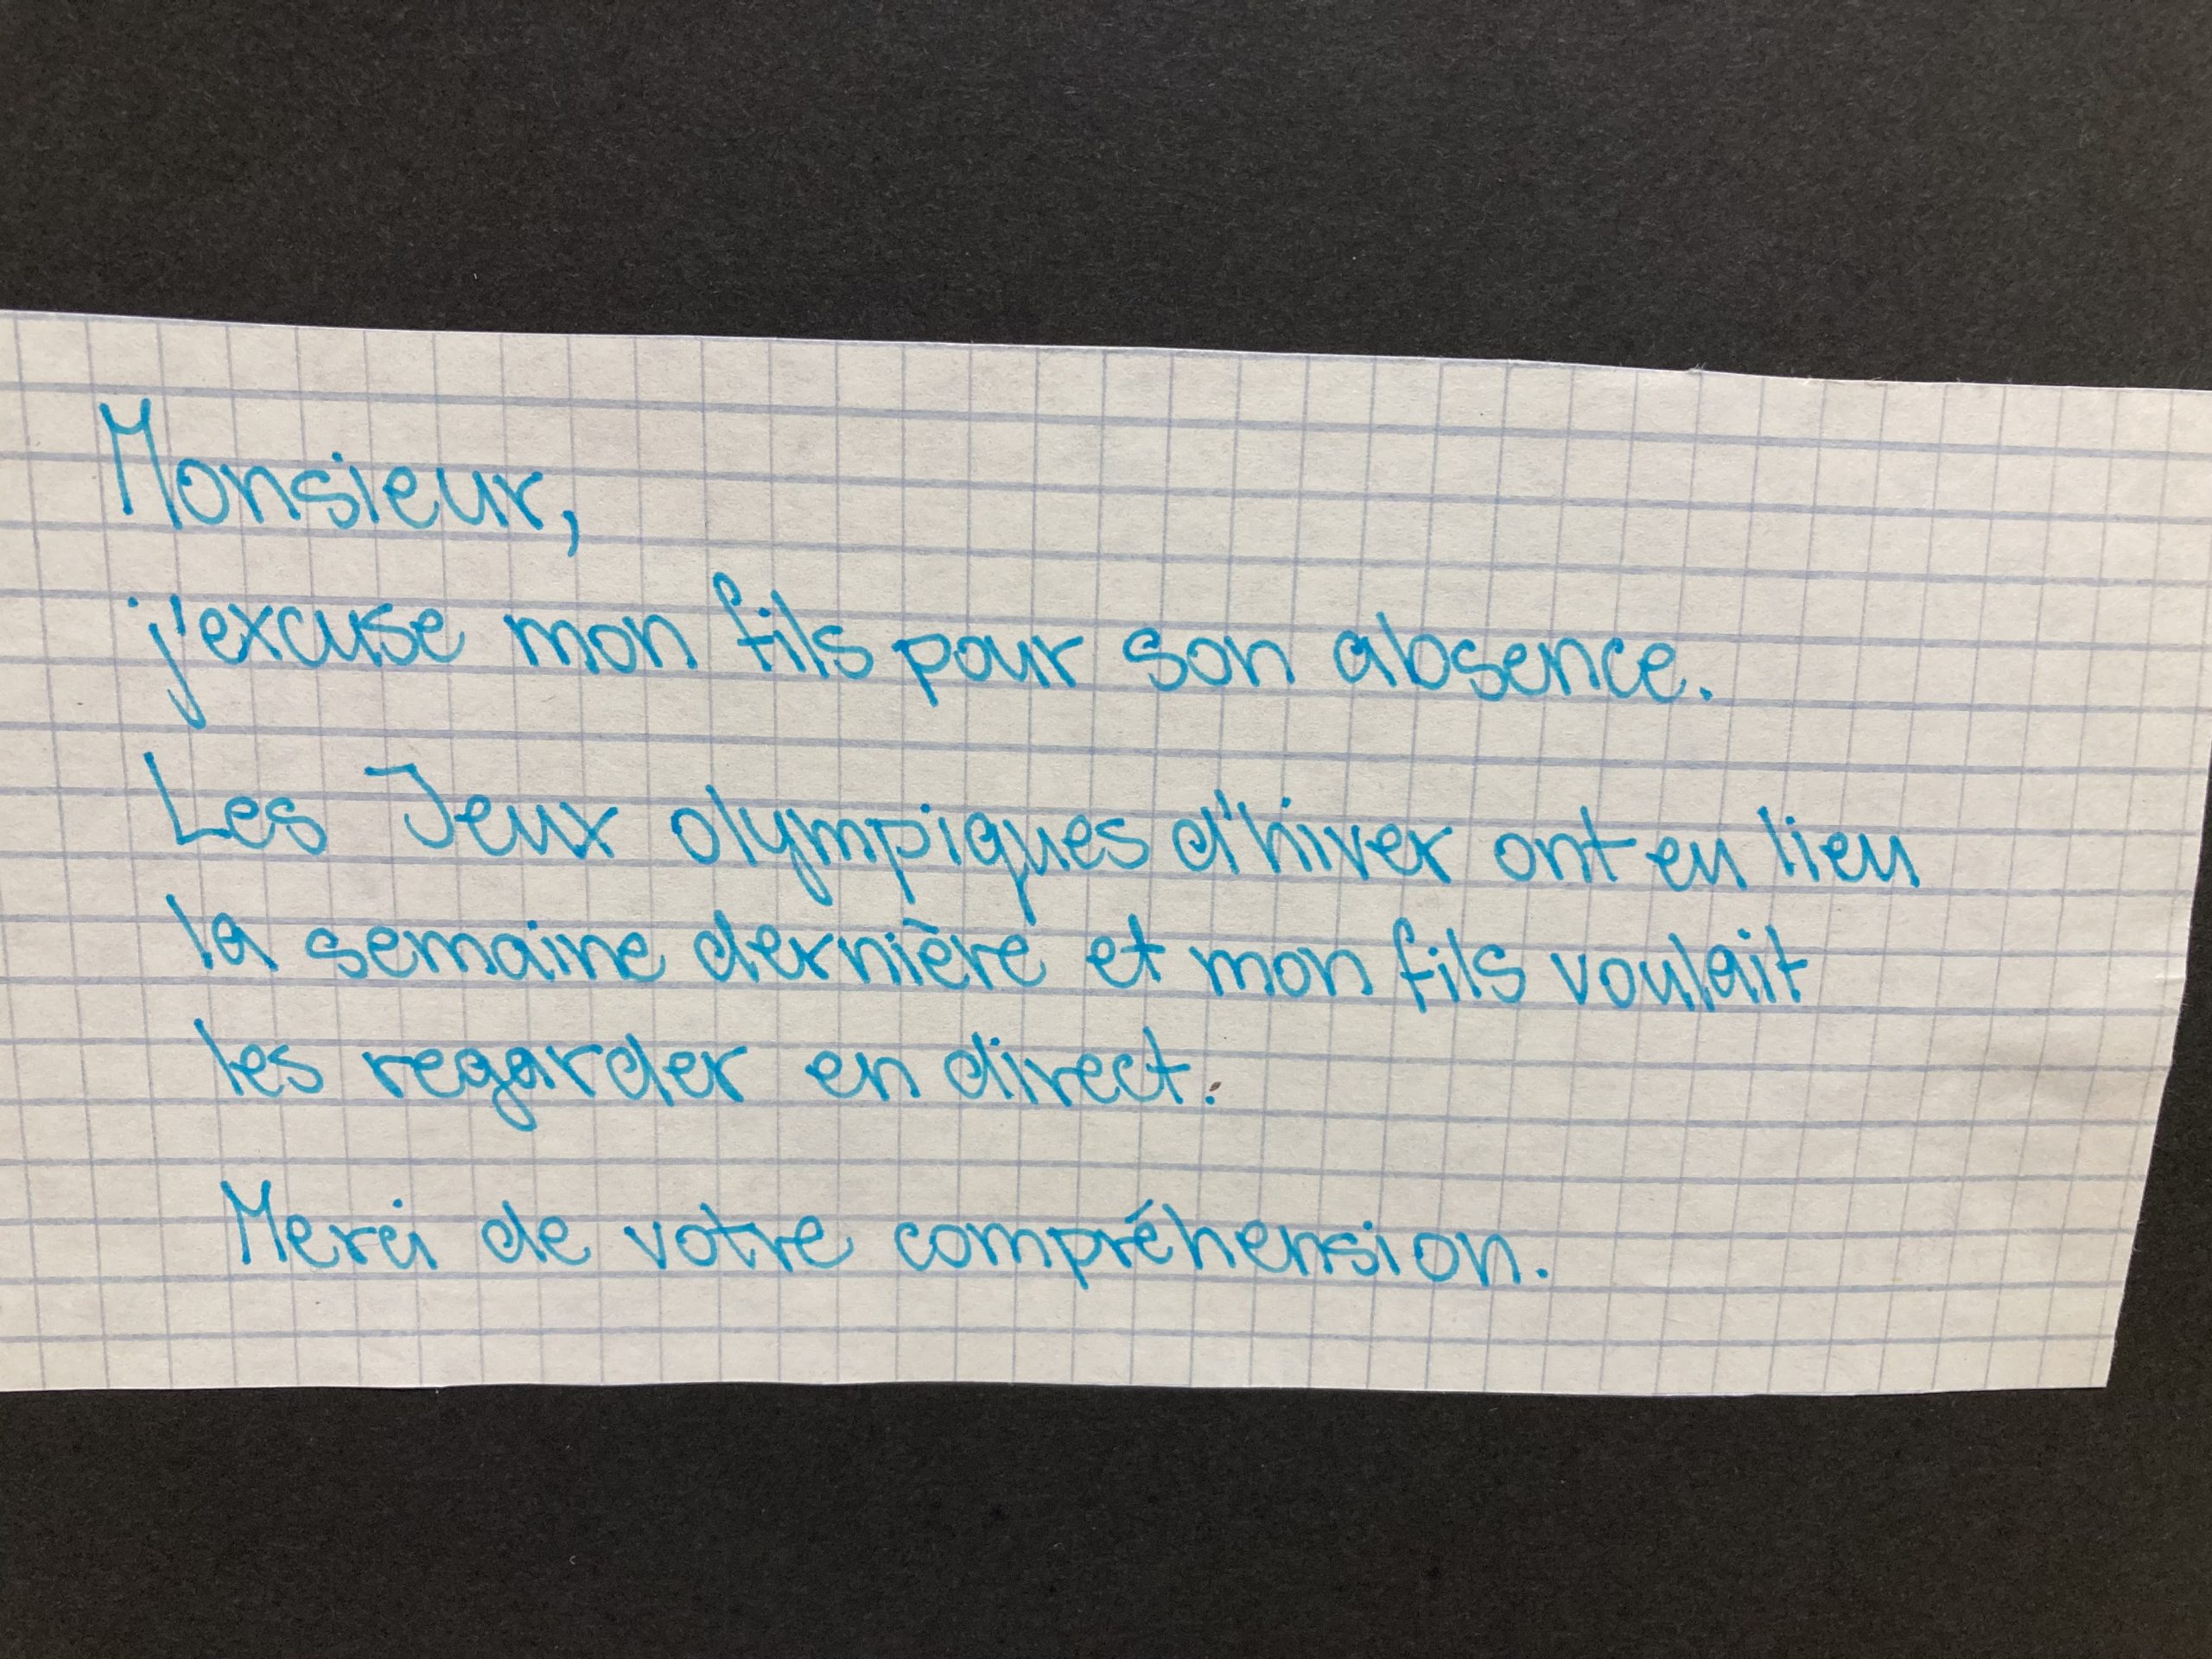 Monsieur,
j'excuse mon fils pour son absence.
Les Jeux olympiques d'hiver ont eu lieu
la semaine dernière et mon fils voulait
les regarder en direct.
Merci de votre compréhension.